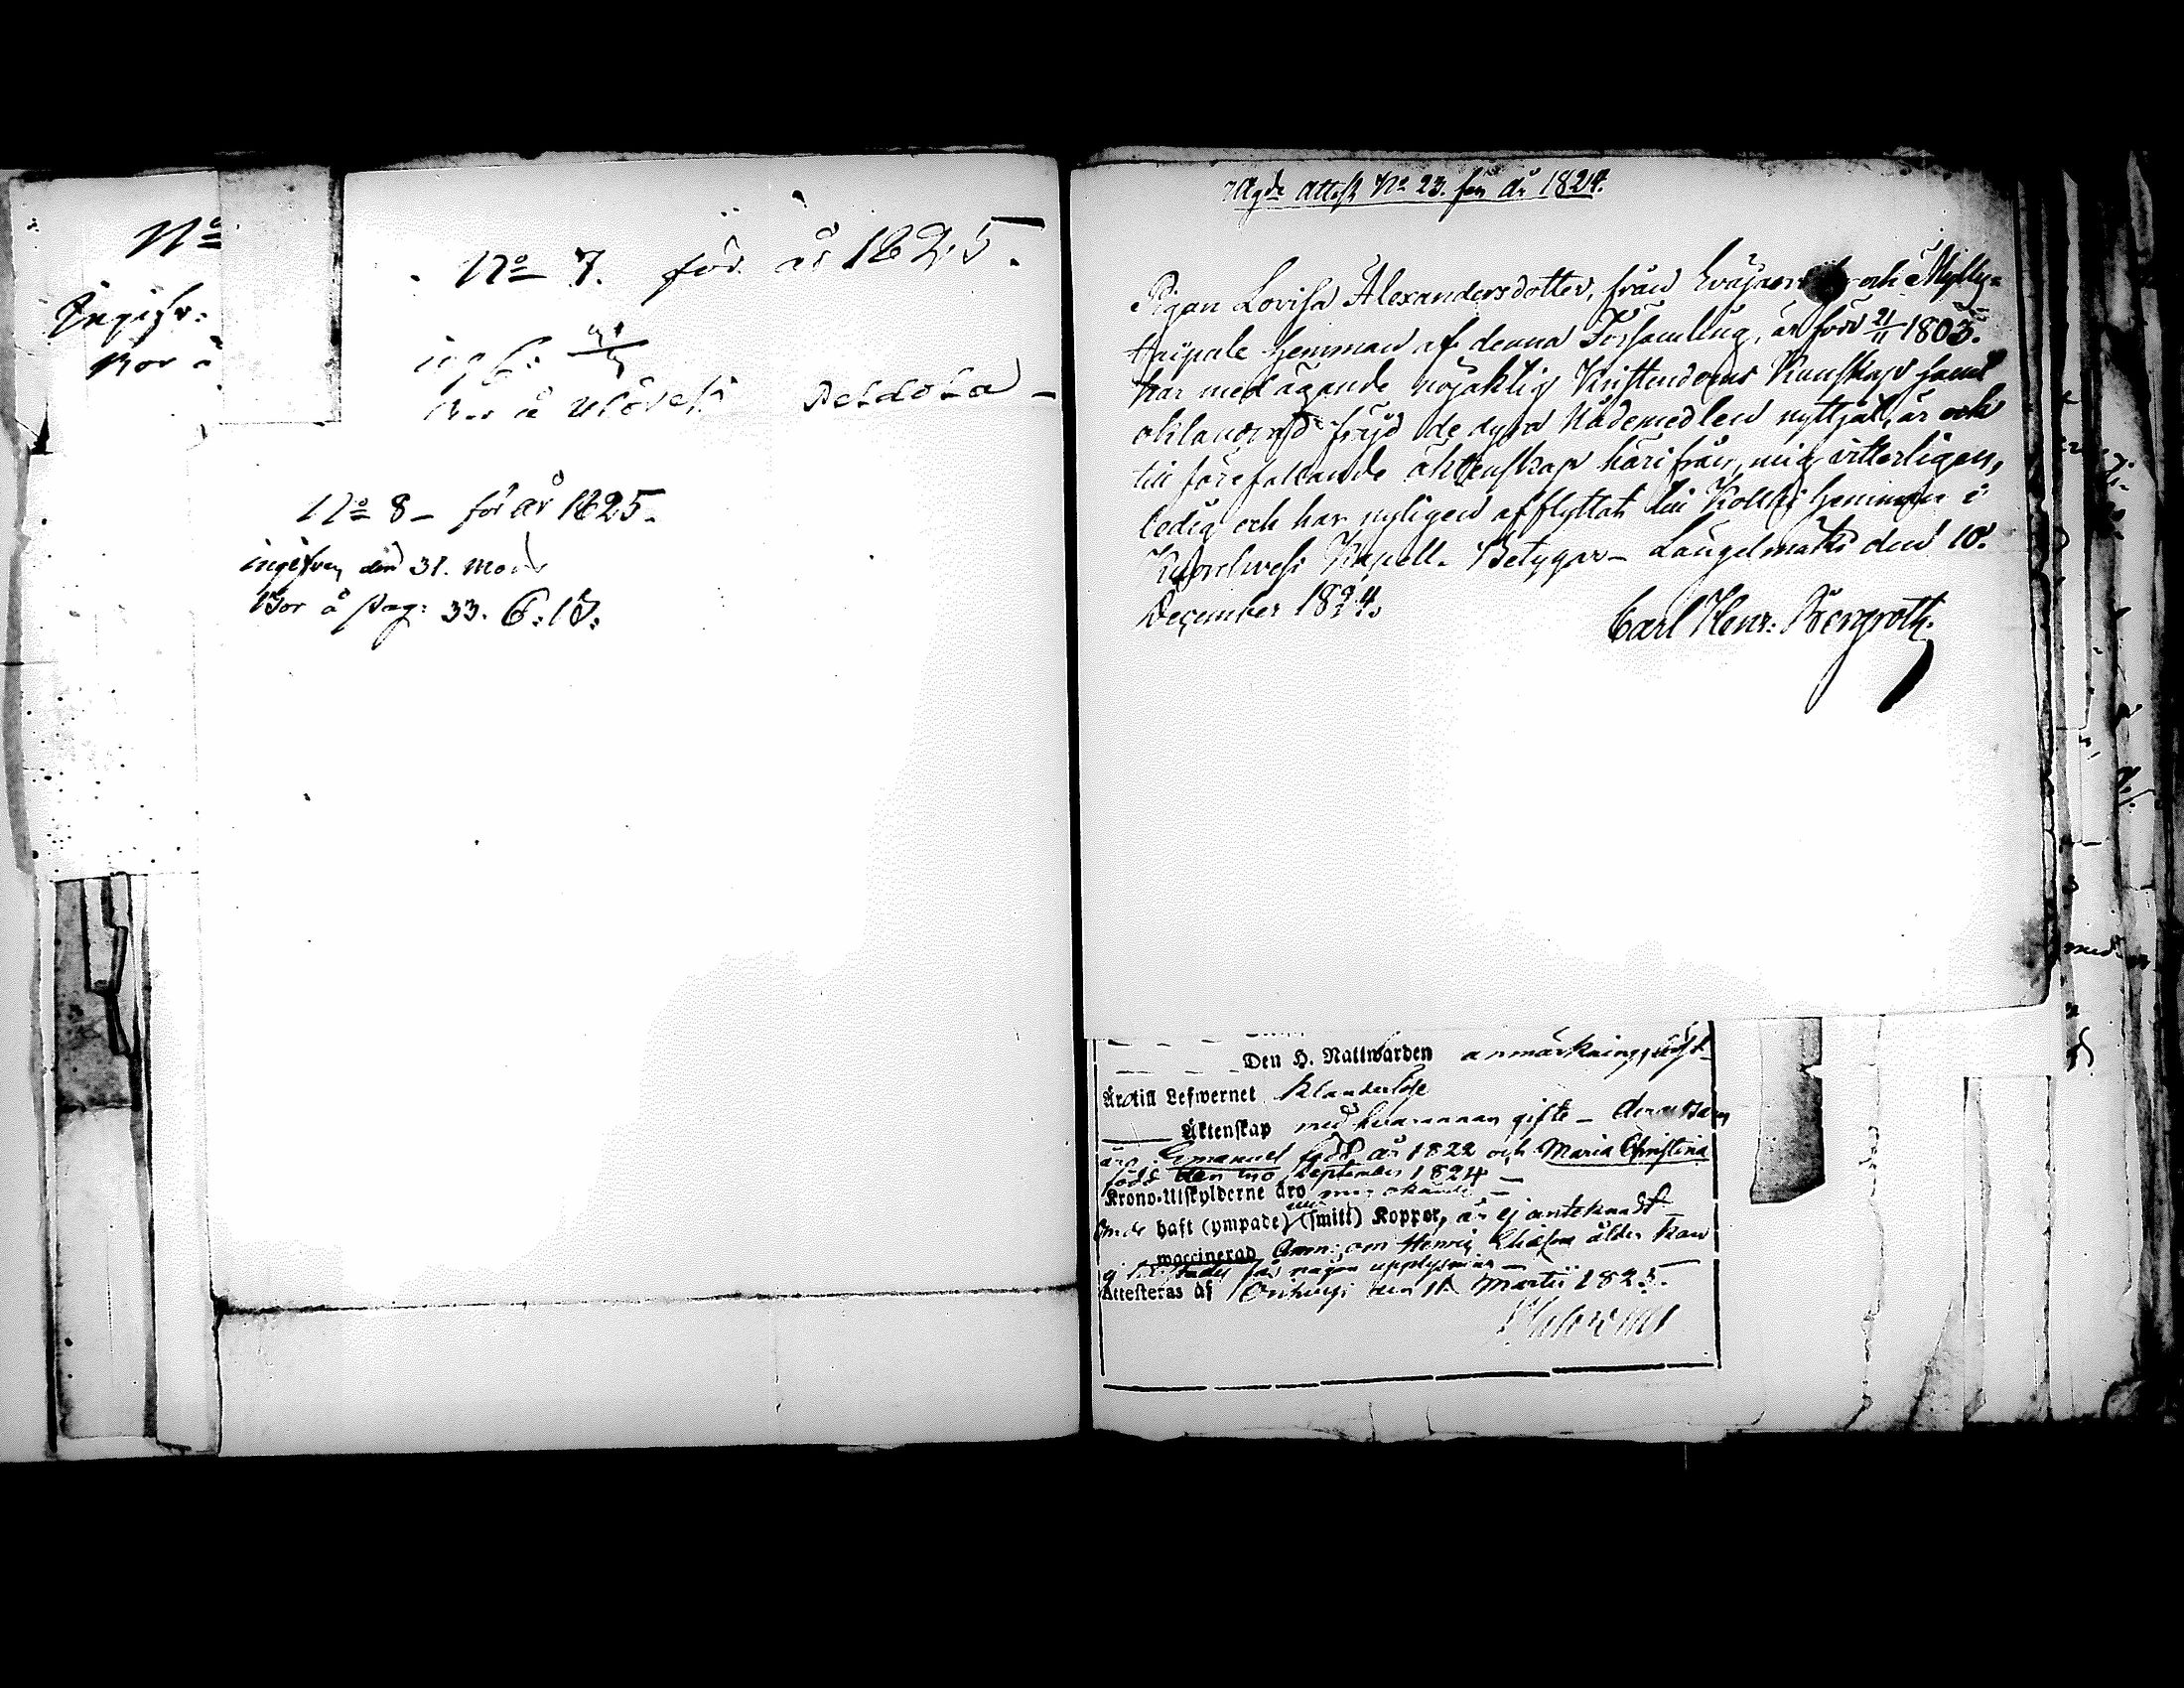 No
Ingifv:
Bor å
No 7. för år 1825.
ingf:
Bor å
No 8 - för år 1825.
ingifven den 31. Mars
Bor å pag: 33. 6:18.
Attest No 23. för år 1824.
Pigan Lovisa Alexandersdotter, från och Mylly=
taipale hemman af denna Församling, är född 21/11 1803.
har med ägande nöjaktig Kristendoms Kunskap samt
oklandrad fräjd de dyra Nådemedlen nyttjat, är och
till förefallande äktenskap härifrån, mig vitterligen,
ledig och har nyligen afflyttat till Kolkki hemman i
Kapell. Betygar - Längelmäki den 10.
December 1824.
Carl Henr: Bergroth.
Den H. Nattwarden anmärkning
Äro till Lefwernet klanderlöse
Äktenskap med hvarannan gifte - deras Barn
äro Emanuel född år 1822 och Maria Christina
född den September 1824
Krono-Utskylderne äro
haft (ympade) (smitt) Koppor, är ej anteknadt
waccinerad Anm: om Henric ålder kan
ej någon upplysning
Attesteras af Orihvesi den Martii 1825.